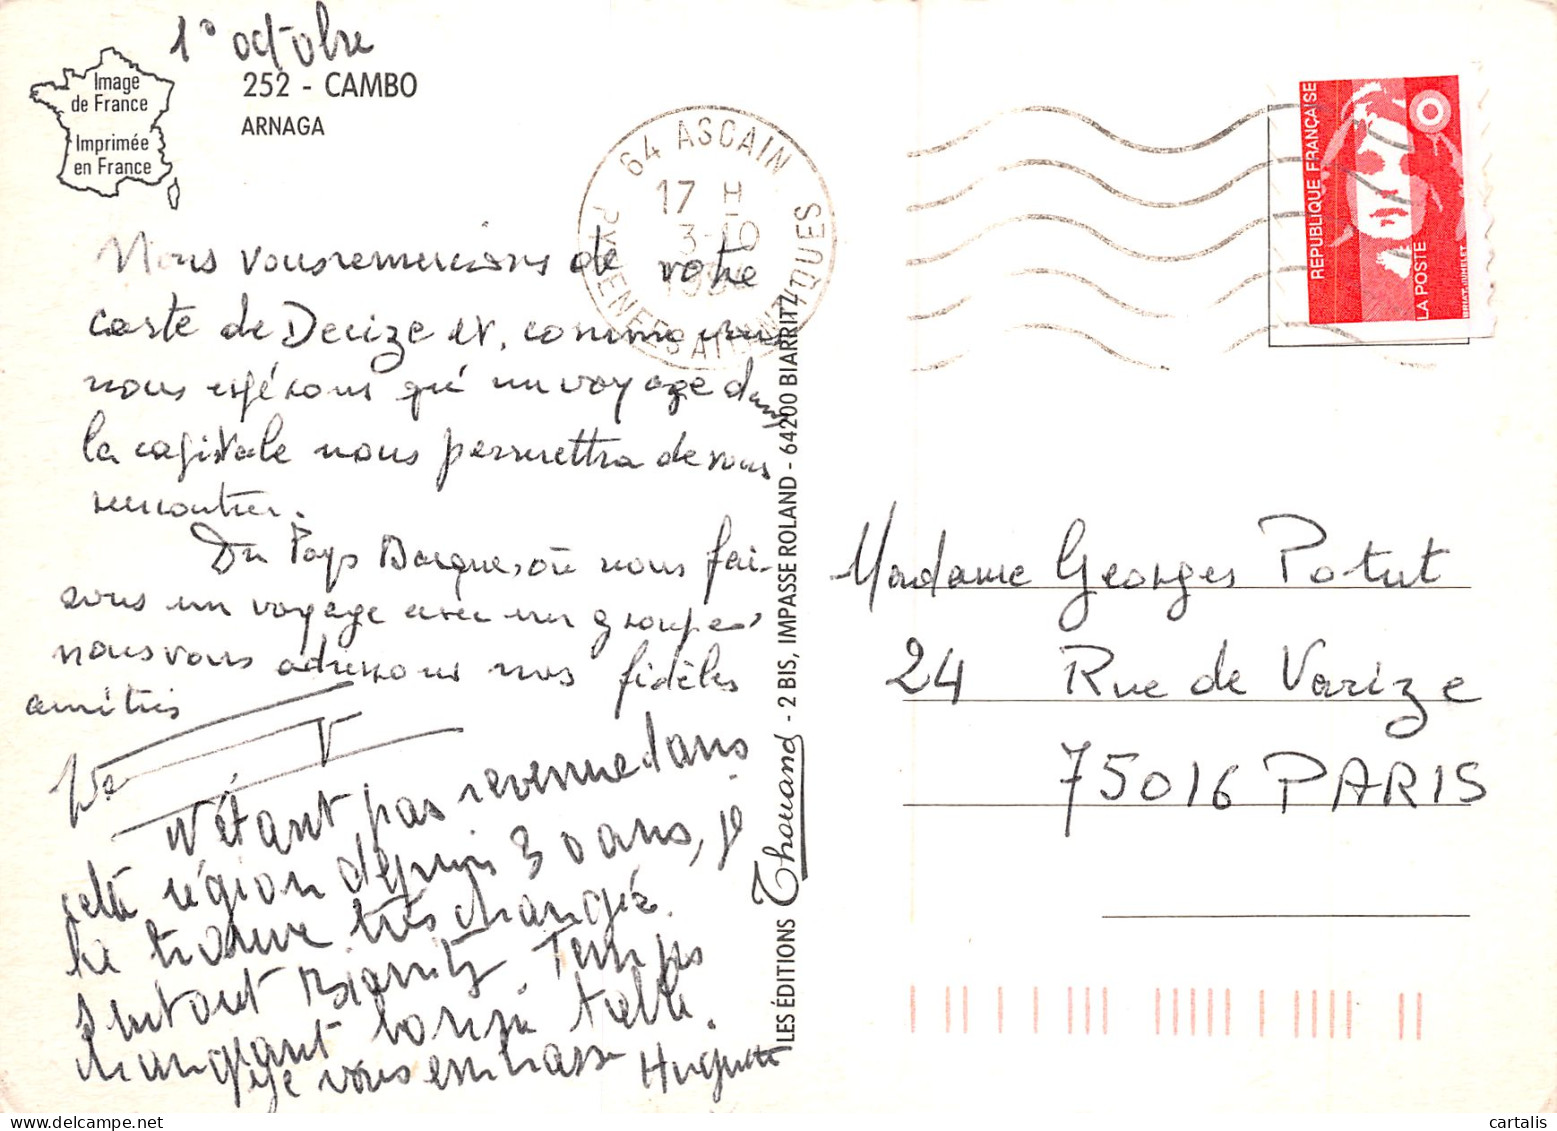 1° octobre
Image
de France
Imprimée
en France
252 - CAMBO
ARNAGA
64 ASCAIN
17 H
3-10
PYRENEES ATLANTIQUES
REPUBLIQUE FRANÇAISE
LA POSTE
Nous vous remercions de votre
carte de Decize et, comme vous
nous espérons qu'un voyage dans
la capitale nous permettra de vous
rencontrer.
Du Pays Basque, où nous fai-
sons un voyage avec un groupe,
nous vous adressons nos fidèles
amitiés
N'étant pas revenue dans
cette région depuis 30 ans, je
la trouve très changée.
Surtout Biarritz. Temps
changeant
Je vous embrasse Huguette
LES ÉDITIONS Thouand - 2 BIS, IMPASSE ROLAND - 64200 BIARRITZ
Madame Georges Potut
24 Rue de Varize
75016 PARIS
cartalis